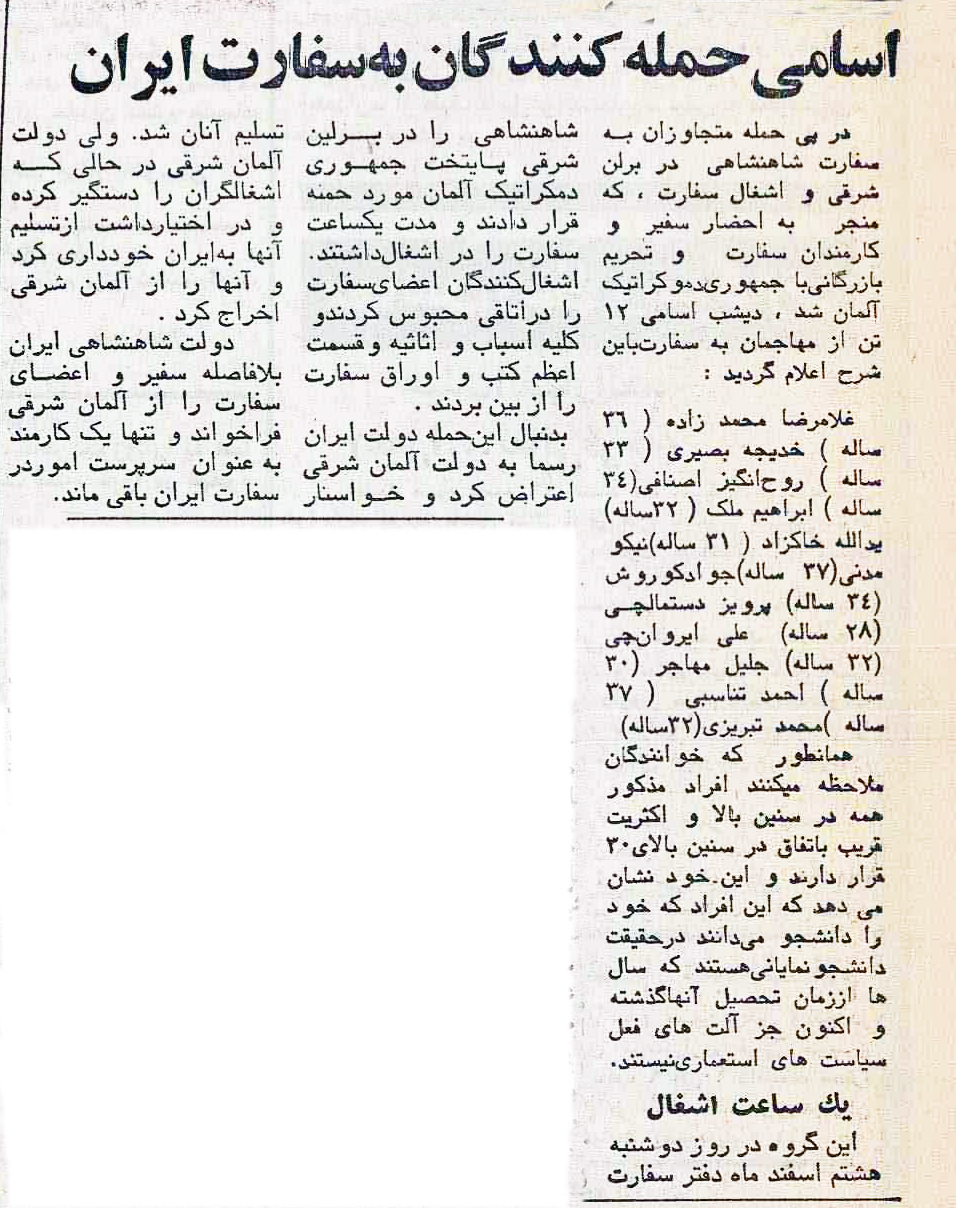 اسامی حمله کنندگان به سفارت ایران
در پی حمله متجاوزان به
سفارت شاهنشاهی در برلن
شرقی و اشغال سفارت ، که
منجر به احضار سفیر و
کارمندان سفارت و تحریم
بازرگانی‌با جمهوری‌دموکراتیک
آلمان شد ، دیشب اسامی ۱۲
تن از مهاجمان به سفارت‌باین
شرح اعلام گردید :
غلامرضا محمد زاده ( ۳۶
ساله ) خدیجه بصیری ( ۲۳
ساله ) روح‌انگیز اصنافی(۳۴
ساله ) ابراهیم ملک ( ۳۲ساله)
یدالله خاکزاد ( ۳۱ ساله)نیکو
مدنی(۳۷ ساله)جوادکوروش
(۳۴ ساله) پرویز دستمالچی
(۲۸ ساله) علی ایروانچی
(۳۲ ساله) جلیل مهاجر (۳۰
ساله ) احمد تناسبی ( ۳۷
ساله )محمد تبریزی(۳۲ساله)
همانطور که خوانندگان
ملاحظه میکنند افراد مذکور
همه در سنین بالا و اکثریت
قریب باتفاق در سنین بالای۳۰
قرار دارند و این خود نشان
می دهد که این افراد که خود
را دانشجو می‌دانند درحقیقت
دانشجو نمایانی‌هستند که سال
ها اززمان تحصیل آنهاگذشته
و اکنون جز آلت های فعل
سیاست های استعماری‌نیستند.
یك ساعت اشغال
این گروه در روز دوشنبه
هشتم اسفند ماه دفتر سفارت
شاهنشاهی را در برلین
شرقی پایتخت جمهوری
دمکراتیک آلمان مورد حمله
قرار دادند و مدت یکساعت
سفارت را در اشغال‌داشتند.
اشغال‌کنندگان اعضای‌سفارت
را دراتاقی محبوس کردندو
کلیه اسباب و اثاثیه وقسمت
اعظم کتب و اوراق سفارت
را از بین بردند .
بدنبال این‌حمله دولت ایران
رسما به دولت آلمان شرقی
اعتراض کرد و خواستار
تسلیم آنان شد. ولی دولت
آلمان شرقی در حالی که
اشغالگران را دستگیر کرده
و در اختیارداشت ازتسلیم
آنها به‌ایران خودداری کرد
و آنها را از آلمان شرقی
اخراج کرد .
دولت شاهنشاهی ایران
بلافاصله سفیر و اعضای
سفارت را از آلمان شرقی
فراخواند و تنها یک کارمند
به عنوان سرپرست اموردر
سفارت ایران باقی ماند.